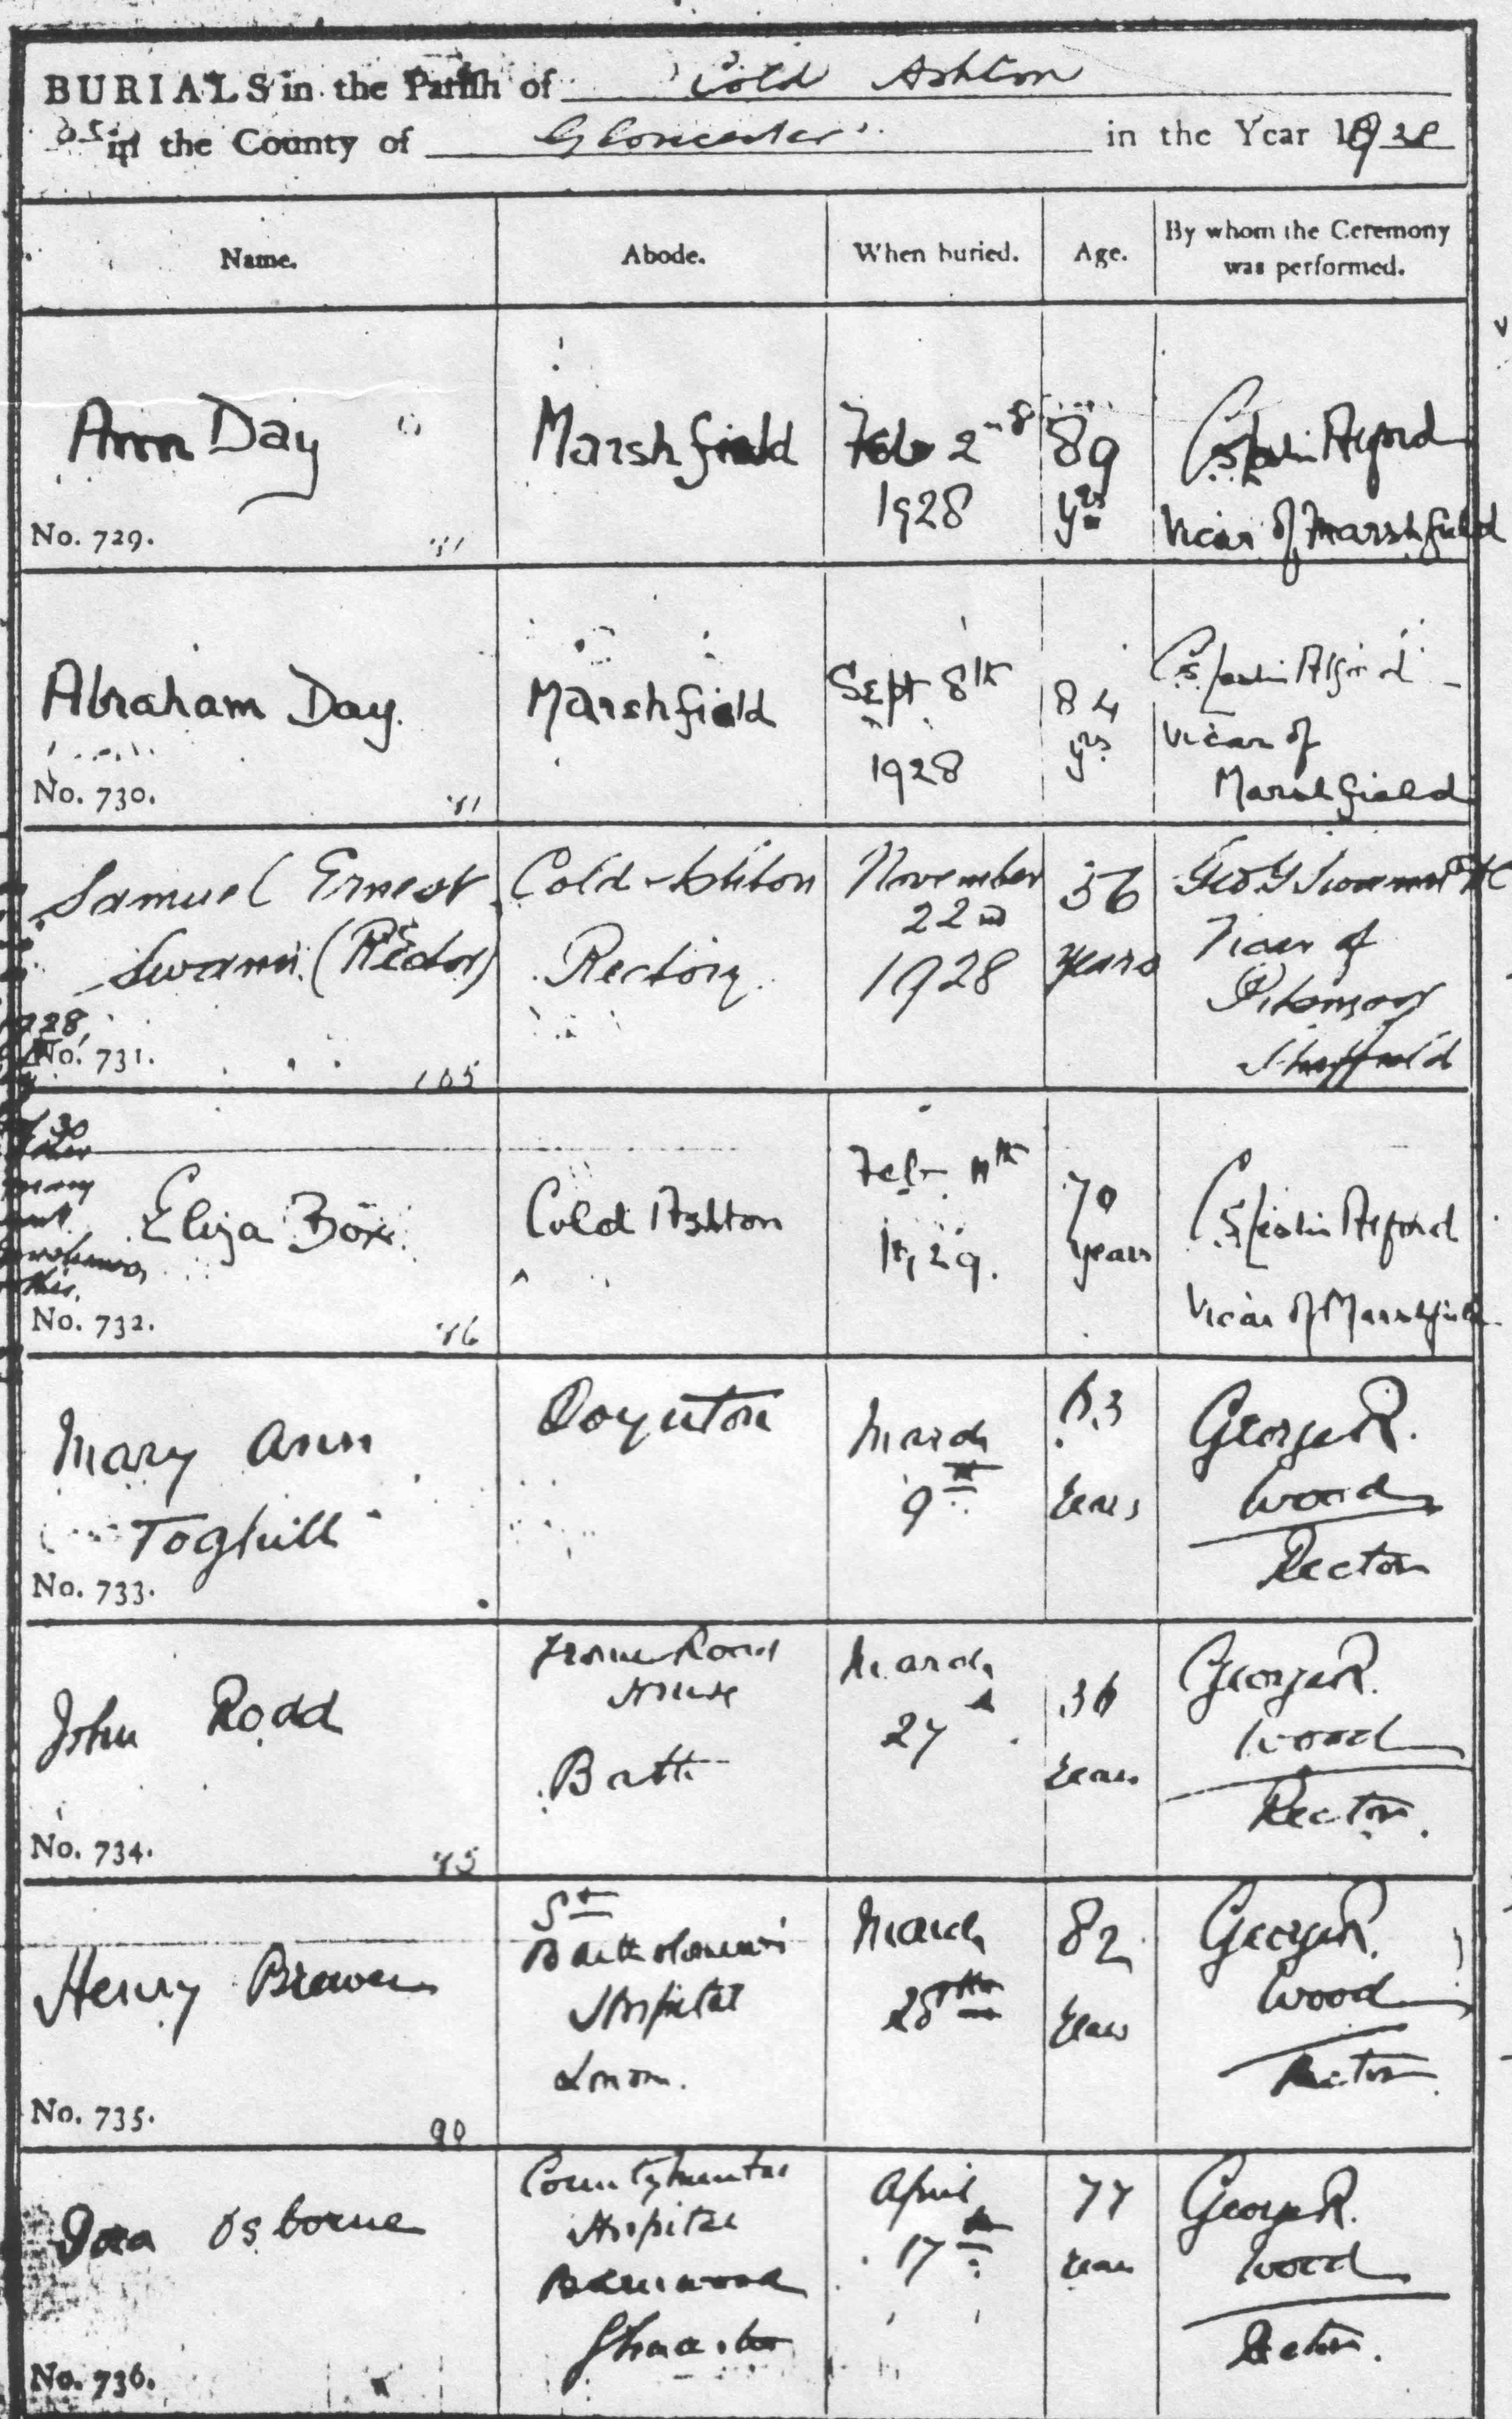 BURIALS in the Parish of Cold Ashton
in the County of Gloucester in the Year 1928
Name. Abode. When buried. Age. By whom the Ceremony was performed.
Ann Day Marshfield Feb 2nd 1928 89 yrs Alford
Vicar of Marshfield
No. 729.
Abraham Day. Marshfield Sept 8th 1928 84 yrs Alford
Vicar of
Marshfield
No. 730.
Samuel Ernest Swann (Rector) Cold Ashton Rectory November 22nd 1928 56 years Geo Swann
Vicar of
Pitsmoor
Sheffield
No. 731. 105
Eliza Box. Cold Ashton Feb 11th 1929. 70 years Alford
Vicar of Marshfield
No. 732.
Mary Ann Toghill Doynton March 9th 63 Years George R. Wood
Rector
No. 733.
John Rodd Frome Road House Bath March 27th 36 Years George R. Wood
Rector.
No. 734.
Henry Brewer St Bartholomew's Hospital London. March 28th 82 Years George R. Wood
Rector.
No. 735. 90
Osborne County Mental Hospital Barnwood Gloucester April 17th 77 Years George R. Wood
Rector.
No. 736.